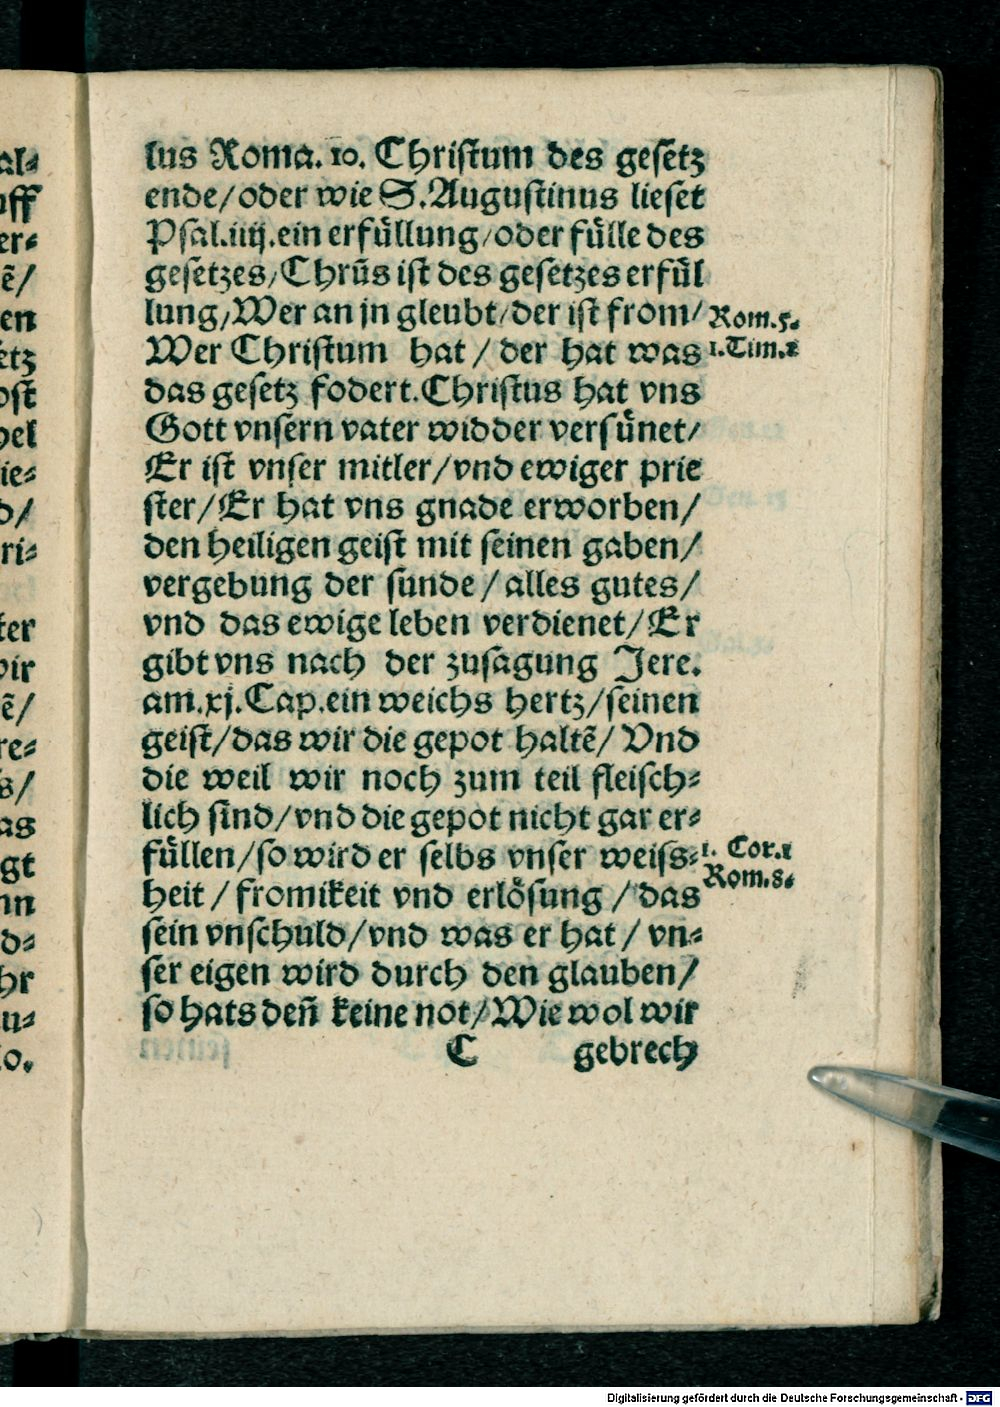 lus Roma. 10. Christum des gesetz
ende/oder wie S. Augustinus lieset
Psal.iiij.ein erfüllung/oder fülle des
gesetzes/Chrũs ist des gesetzes erfül
lung/Wer an jn gleubt/der ist from/
Rom.5.
Wer Christum hat / der hat was
1.Tim.1
das gesetz fodert. Christus hat vns
Gott vnsern vater widder versünet/
Er ist vnser mitler/vnd ewiger prie
ster/Er hat vns gnade erworben/
den heiligen geist mit seinen gaben/
vergebung der sunde / alles gutes/
vnd das ewige leben verdienet/Er
gibt vns nach der zusagung Jere.
am.xj.Cap.ein weichs hertz/seinen
geist/das wir die gepot haltē/ Vnd
die weil wir noch zum teil fleisch-
lich sind/vnd die gepot nicht gar er-
füllen/so wird er selbs vnser weiss-
1. Cor.1
heit / fromikeit vnd erlösung / das
Rom.8.
sein vnschuld/vnd was er hat / vn-
ser eigen wird durch den glauben/
so hats deñ keine not/Wie wol wir
C gebrech
al-
uff
er-
ē/
en
etz
ost
pel
ie-
d/
ri-
ter
wir
ē/
re-
s/
as
gt
nn
d-
hr
u-
lo.
Digitalisierung gefördert durch die Deutsche Forschungsgemeinschaft - DFG